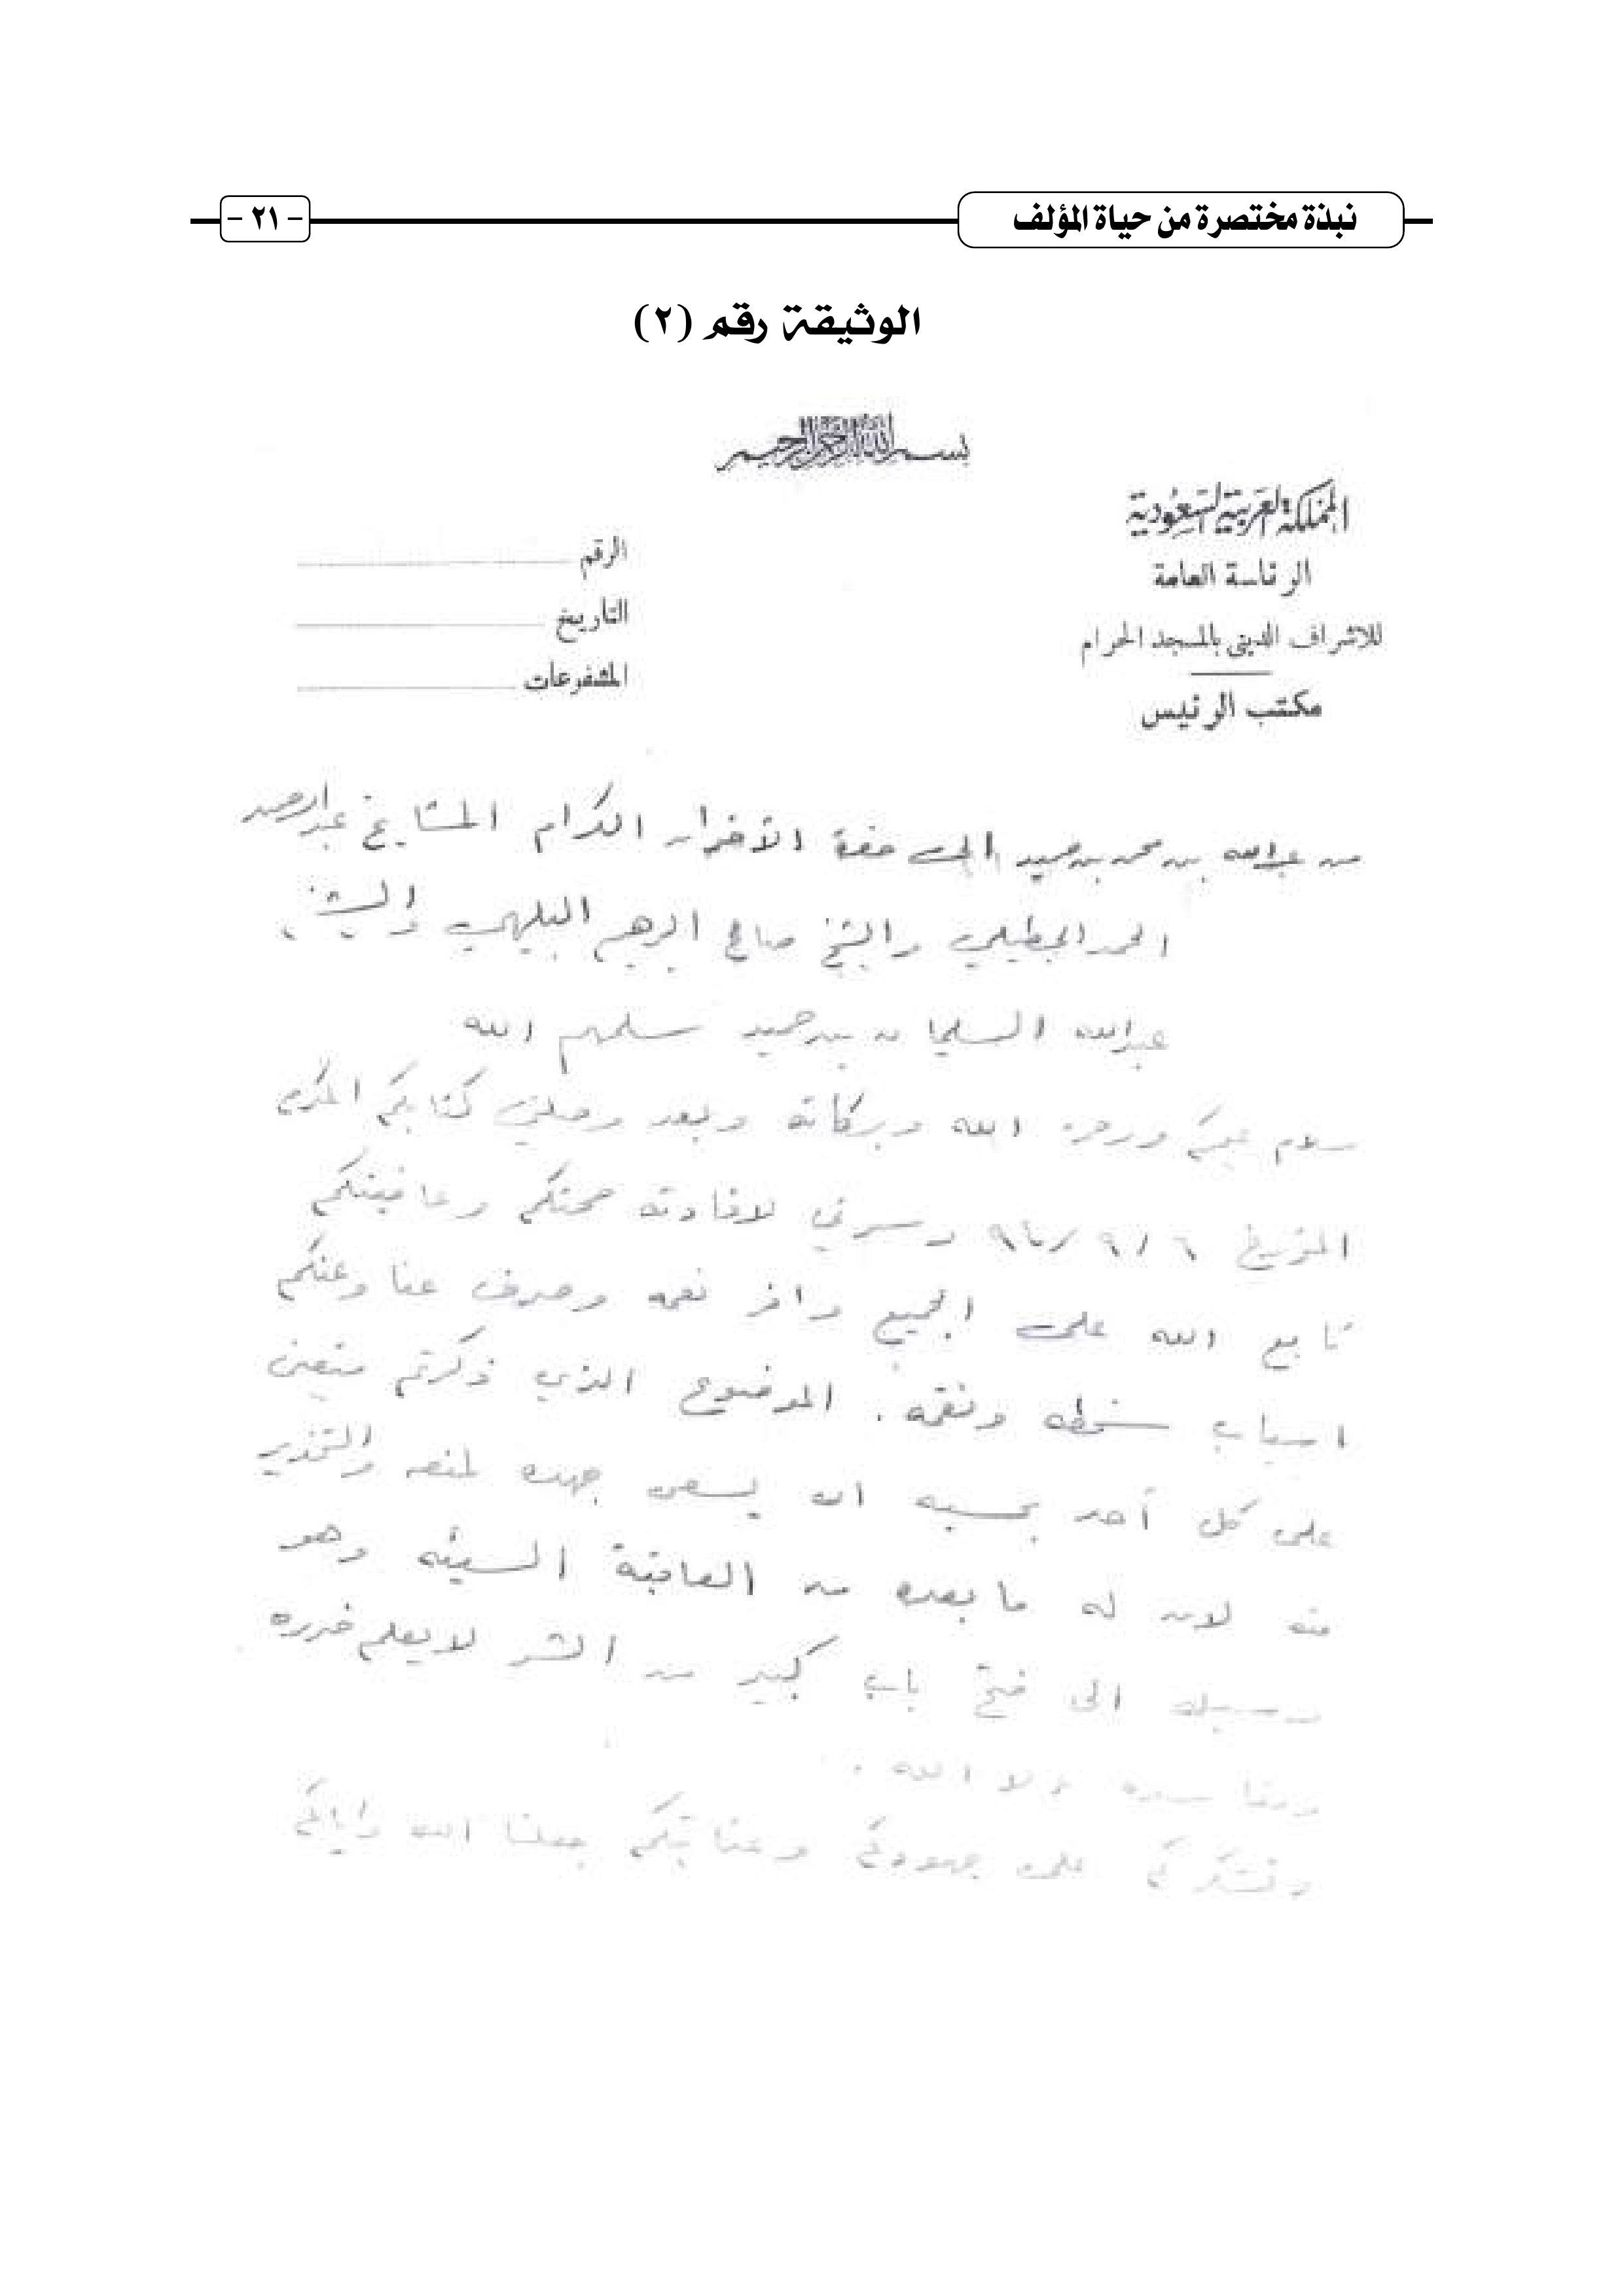 نبذة مختصرة من حياة المؤلف
- ٢١ -
الوثيقة رقم (٢)
بسم الله الرحمن الرحيم
المملكة العربية السعودية
الرئاسة العامة
للاشراف الديني بالمسجد الحرام
مكتب الرئيس
الرقم
التاريخ
المشفوعات
من عبدالله بن محمد بن حميد الى حضرة الأخوان الكرام المشايخ عبدالرحمن
المحمد الجطيلي والشيخ صالح ابرهيم البليهي والشيخ
عبدالله السليمان بن حميد سلمهم الله
سلام عليكم ورحمة الله وبركاته وبعد وصلني كتابكم المكرم
المؤرخ ٦ / ٩ / وسرني لافادته صحتكم وعافيتكم
تابع الله على الجميع وافر نعمه وصرف عنا وعنكم
اسباب سخطه ونقمه . الموضوع الذي ذكرتم متعين
على كل أحد بحسبه ان يسعى جهده لمنعه والتحذير
منه لان له ما بعده من العاقبة السيئه وهو
وسيلة الى فتح باب كبير من الشر لا يعلم ضرره
ومفاسده الا الله .
ونشكركم على جهودكم وعنايتكم جعلنا الله واياكم